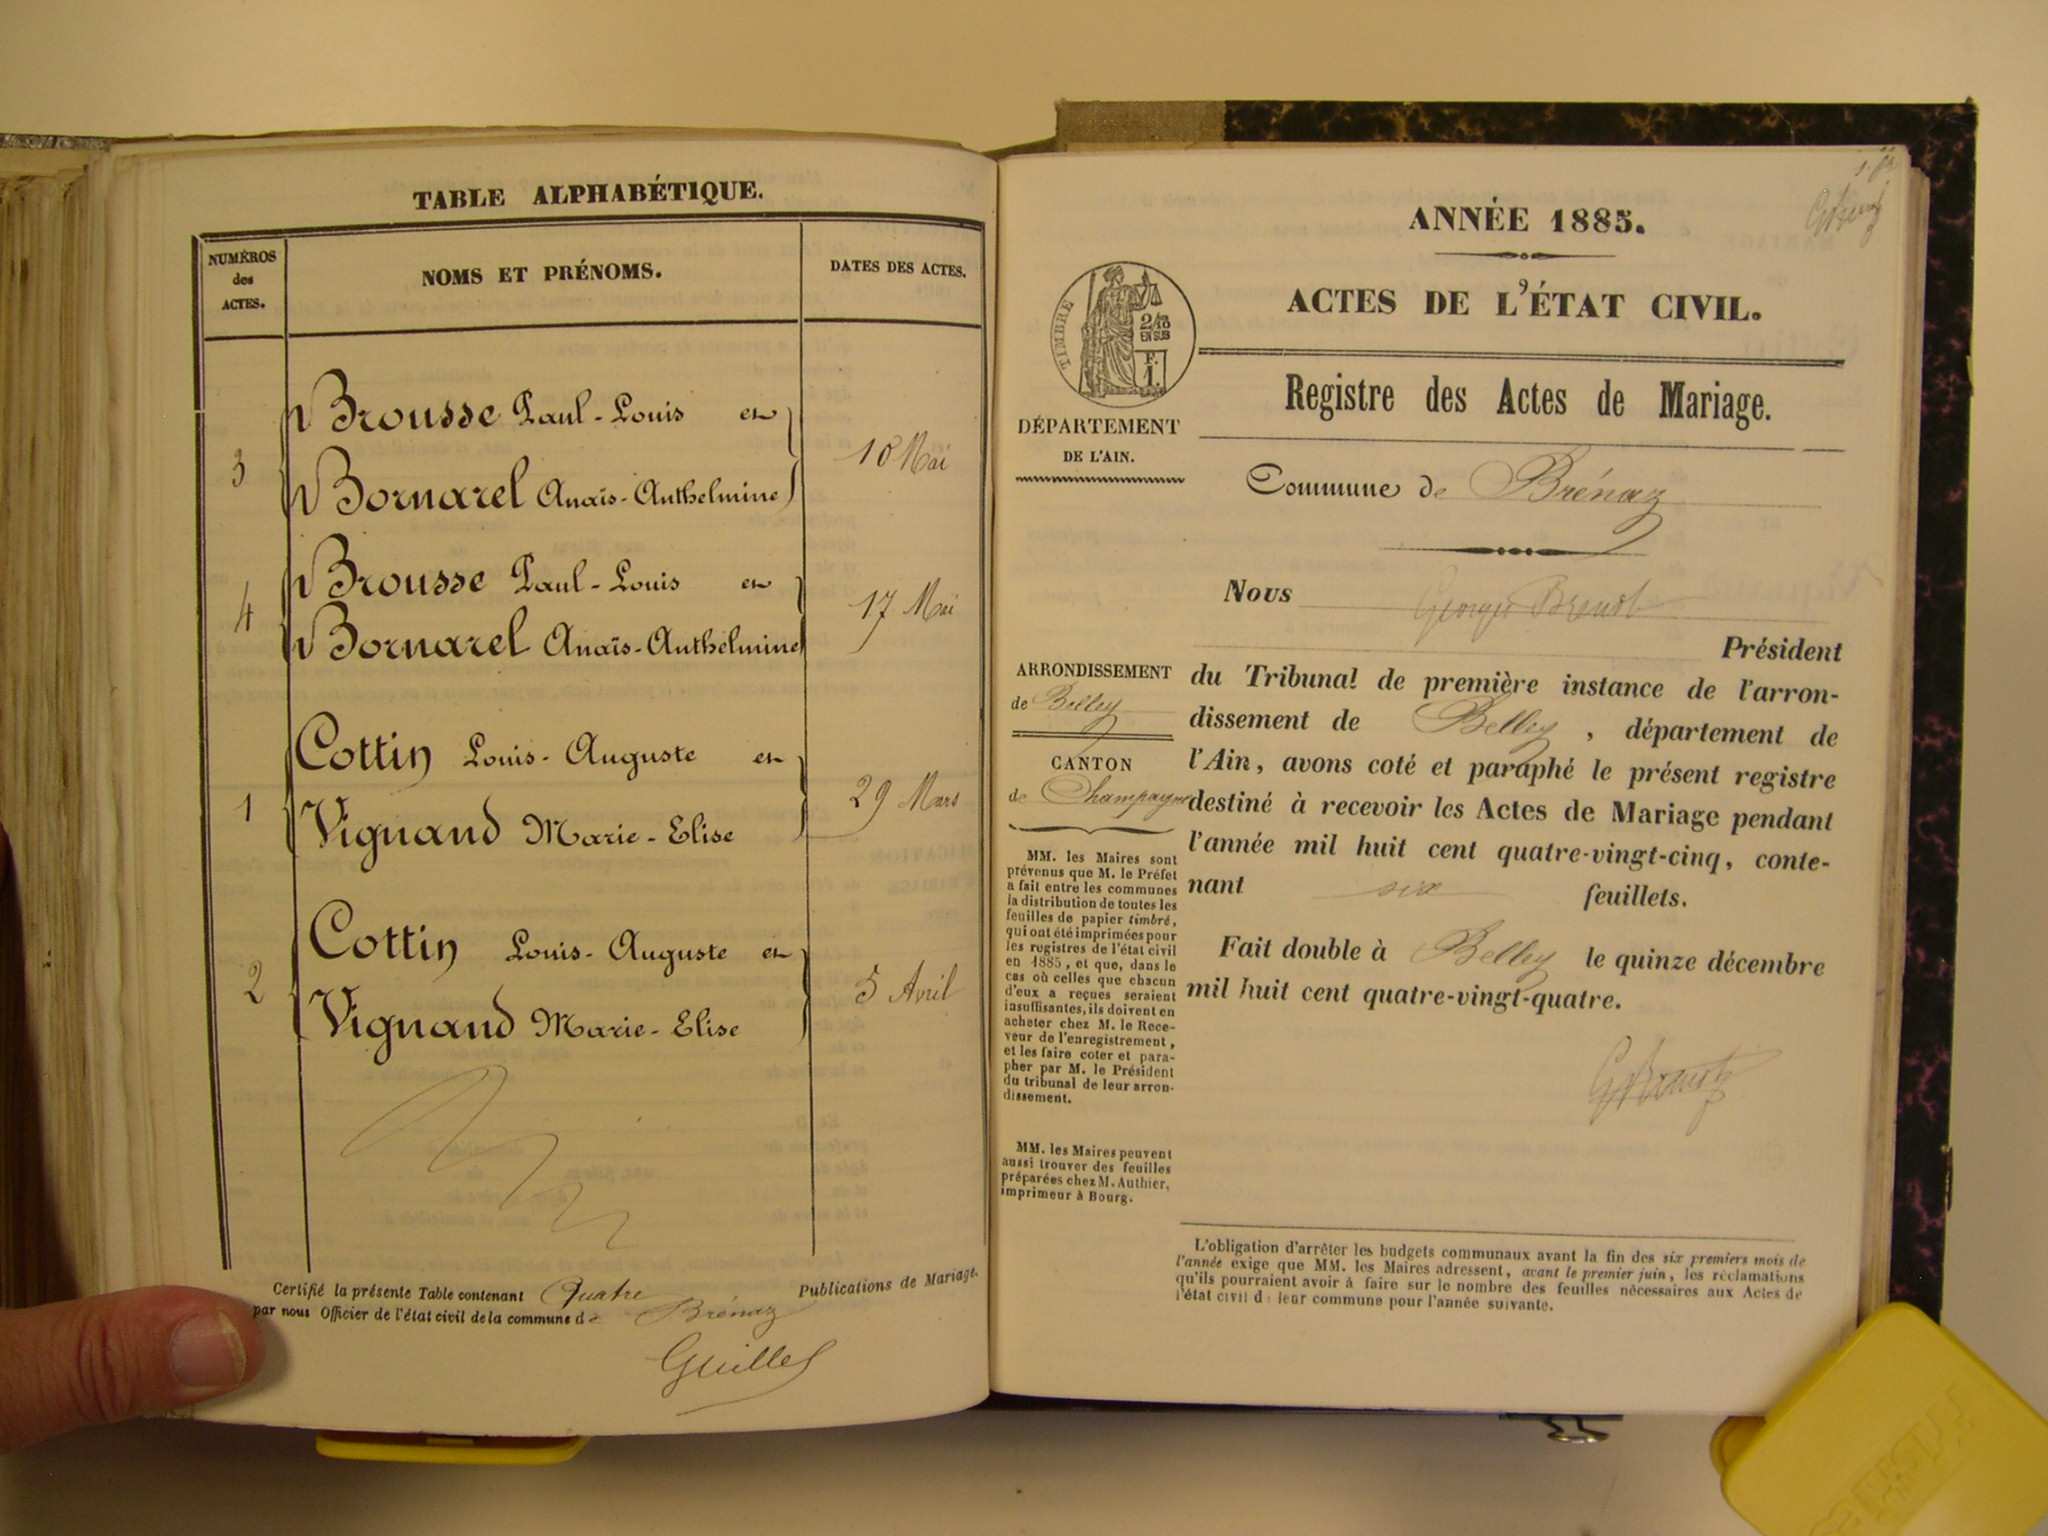 TABLE ALPHABÉTIQUE.
NUMÉROS
des
ACTES.
NOMS ET PRÉNOMS.
DATES DES ACTES.
Brousse Paul-Louis et
3
10 Mai
Bornarel Anaïs-Anthelmine
Brousse Paul-Louis et
4
17 Mai
Bornarel Anaïs-Anthelmine
Cottin Louis-Auguste et
1
29 Mars
Vignand Marie-Elise
Cottin Louis-Auguste et
2
5 Avril
Vignand Marie-Elise
Certifié la présente Table contenant Quatre Publications de Mariage.
par nous Officier de l'état civil de la commune de Brénaz
ANNÉE 1885.
ACTES DE L'ÉTAT CIVIL.
TIMBRE
2/10
EN SUS
F.
1.
Registre des Actes de Mariage.
DÉPARTEMENT
DE L'AIN.
Commune de Brénaz
Nous
Président
ARRONDISSEMENT
de Belley
CANTON
de Champagne
du Tribunal de première instance de l'arron-
dissement de Belley, département de
l'Ain, avons coté et paraphé le présent registre
destiné à recevoir les Actes de Mariage pendant
l'année mil huit cent quatre-vingt-cinq, conte-
nant six feuillets.
Fait double à Belley le quinze décembre
mil huit cent quatre-vingt-quatre.
MM. les Maires sont
prévenus que M. le Préfet
a fait entre les communes
la distribution de toutes les
feuilles de papier timbré,
qui ont été imprimées pour
les registres de l'état civil
en 1885, et que, dans le
cas où celles que chacun
d'eux a reçues seraient
insuffisantes, ils doivent en
acheter chez M. le Rece-
veur de l'enregistrement,
et les faire coter et para-
pher par M. le Président
du tribunal de leur arron-
dissement.
MM. les Maires peuvent
aussi trouver des feuilles
préparées chez M. Authier,
imprimeur à Bourg.
L'obligation d'arrêter les budgets communaux avant la fin des six premiers mois de
l'année exige que MM. les Maires adressent, avant le premier juin, les réclamations
qu'ils pourraient avoir à faire sur le nombre des feuilles nécessaires aux Actes de
l'état civil de leur commune pour l'année suivante.